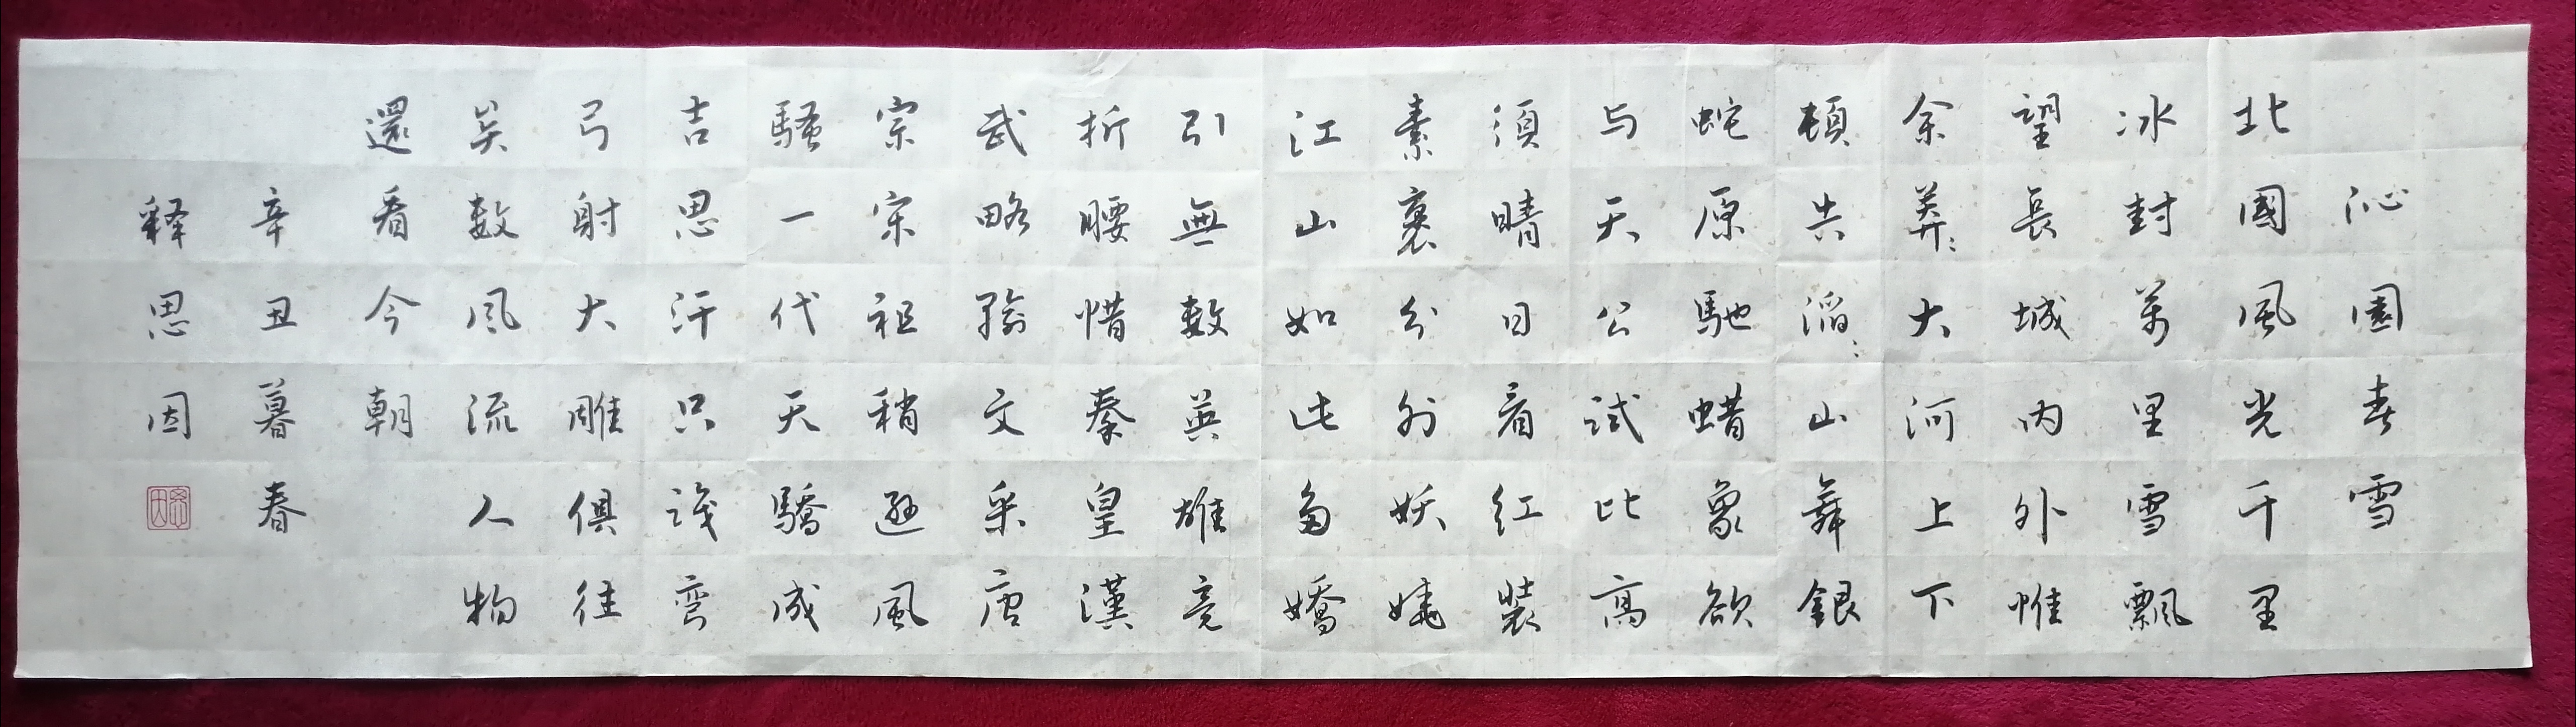 沁園春雪
北國風光千里
冰封萬里雪飄
望長城内外惟
余莽〻大河上下
頓失滔〻山舞銀
蛇原馳蜡象欲
与天公試比高
須晴日看红裝
素裹分外妖嬈
江山如此多嬌
引無數英雄竞
折腰惜秦皇漢
武略輸文采唐
宗宋祖稍遜風
騷一代天驕成
吉思汗只識彎
弓射大雕俱往
矣數風流人物
還看今朝
辛丑暮春
释思因
思因